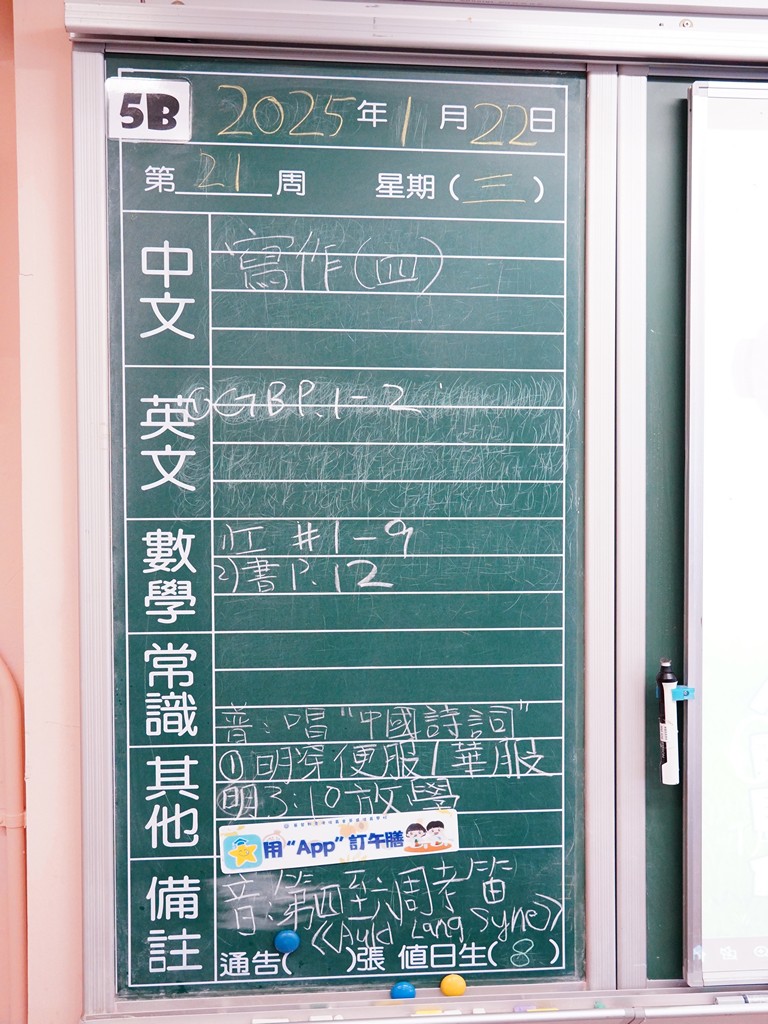 5B 2025年1月22日
第21周 星期(三)
中文
寫作(四)
英文
①GBP.1-2
數學
1)工 #1-9
2)書P.12
常識
普:唱"中國詩詞"
其他
①明穿便服/華服
明3:10放學
用"App"訂午膳
備註
音:第四至六周考笛
《Auld Lang Syne》
通告( )張 值日生(8)